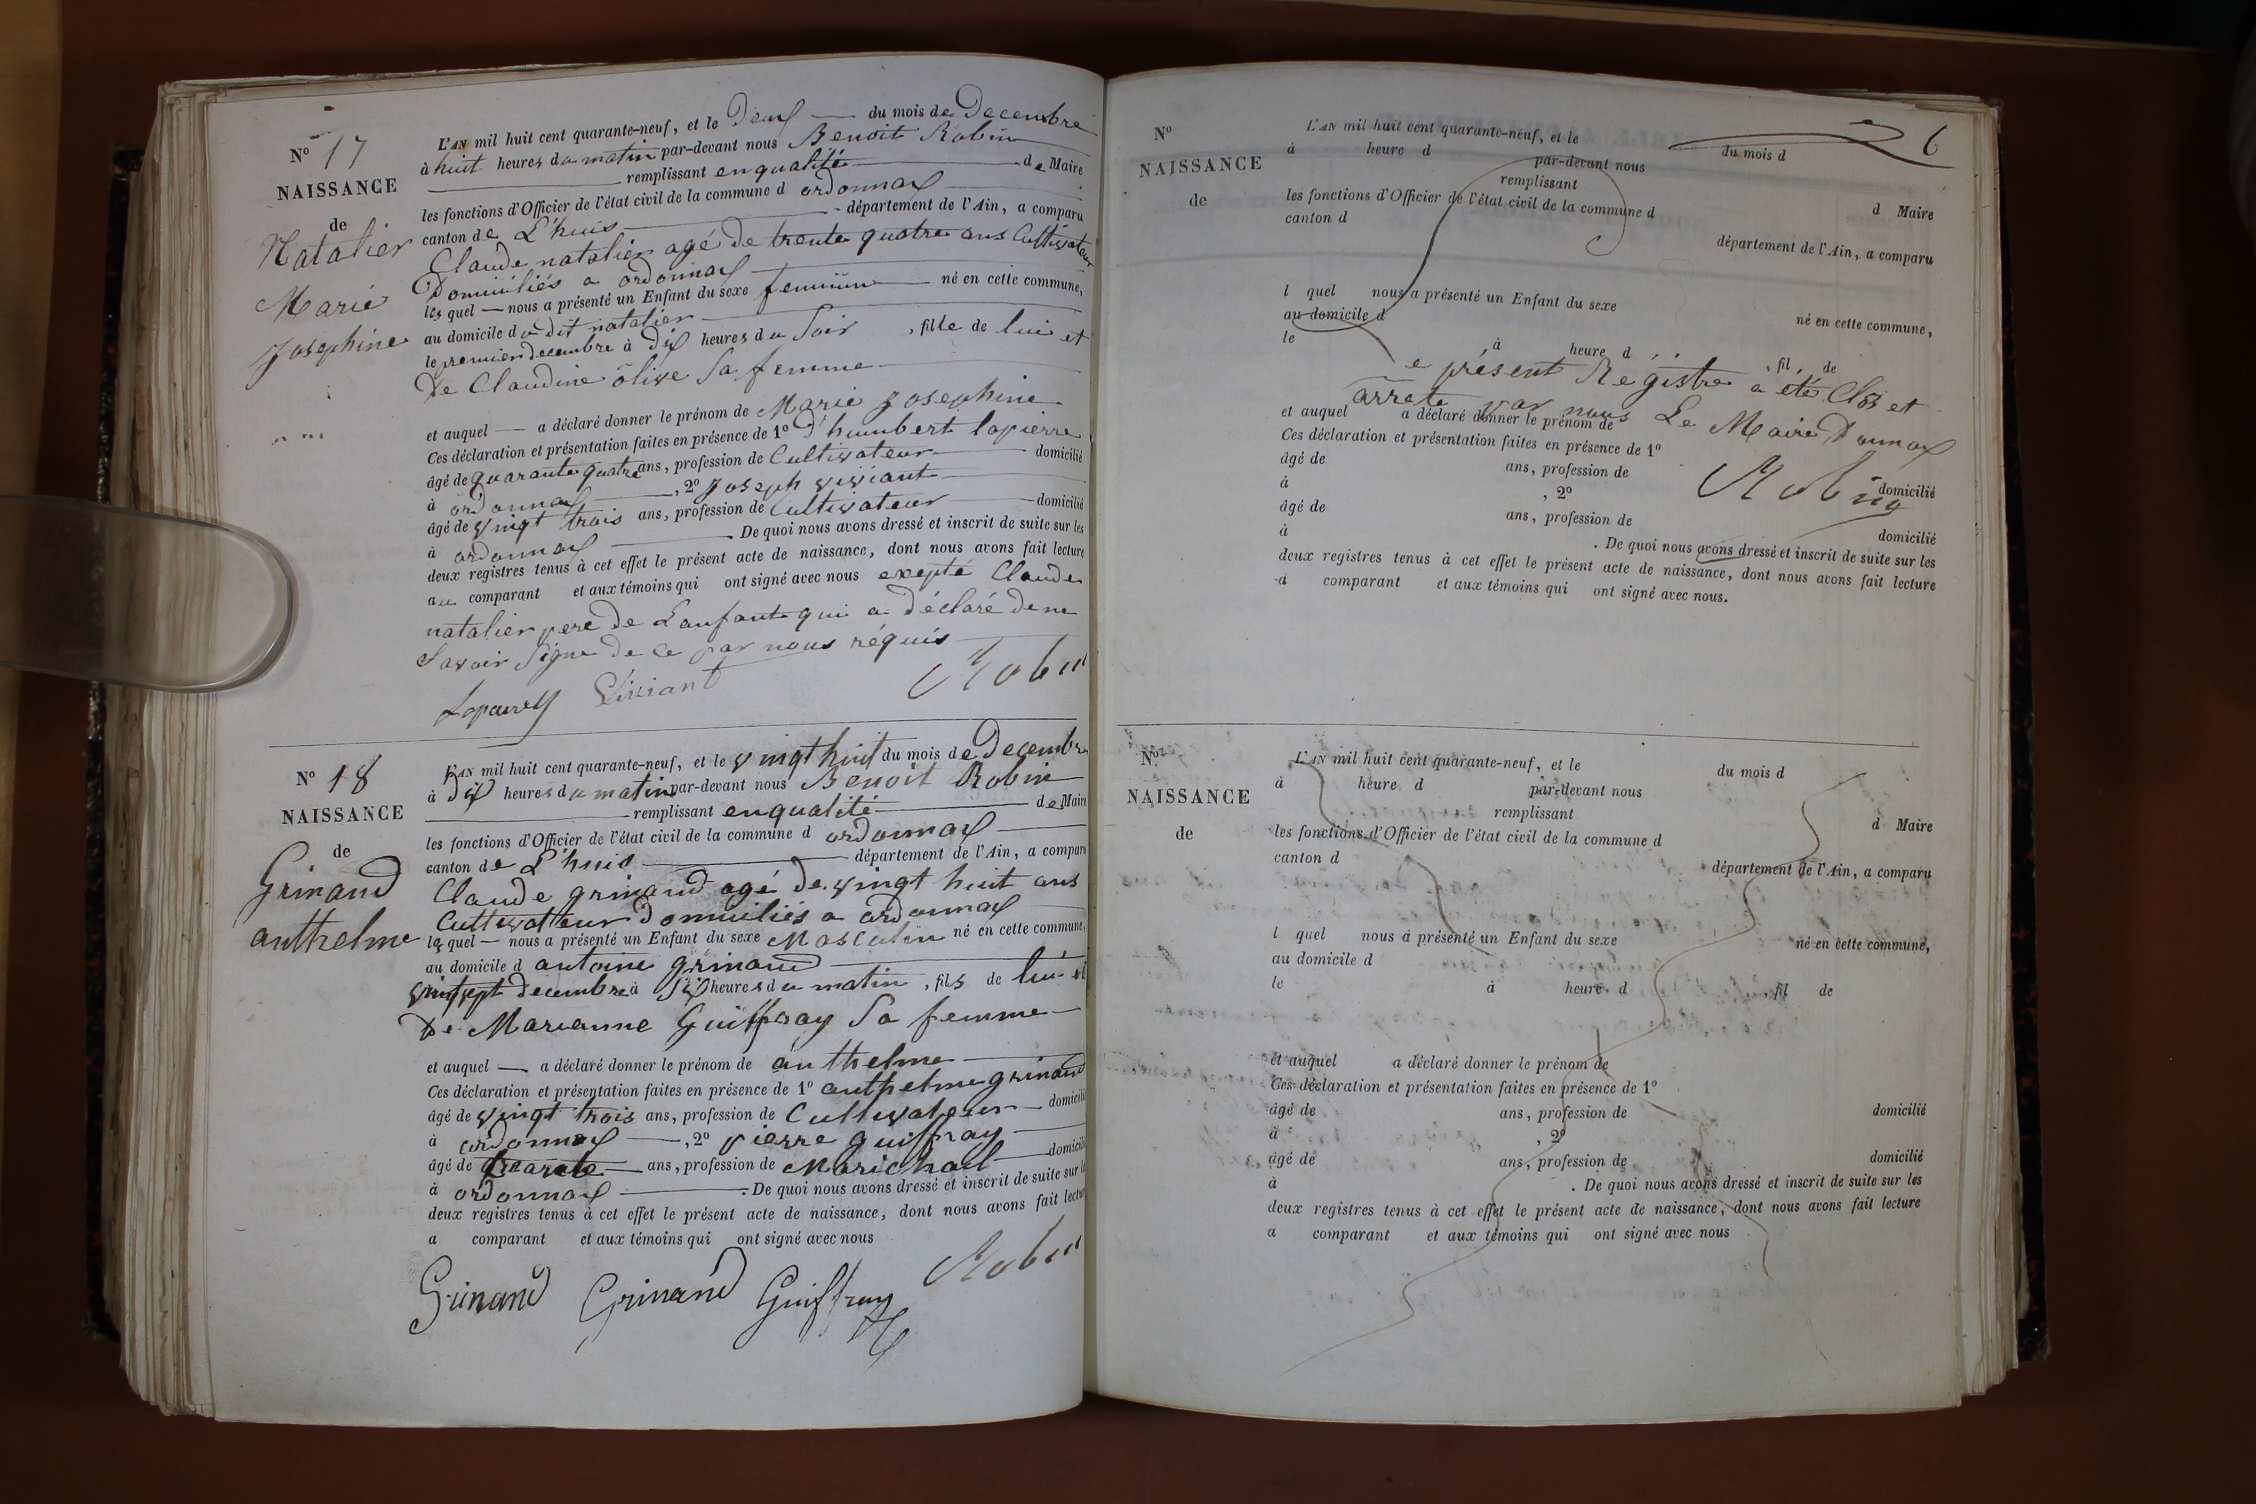 N° 17
NAISSANCE
de
Natalier
Marie
Josephine
L'AN mil huit cent quarante-neuf, et le Deux du mois de Decembre
à huit heures du matin par-devant nous Benoit Robin
remplissant en qualité de Maire
les fonctions d'Officier de l'état civil de la commune d ordonnax
canton de L'huis département de l'Ain, a comparu
Claude natalier agé de trente quatre ans Cultivateur
Domiciliés a ordonnax
les quel — nous a présenté un Enfant du sexe feminin né en cette commune,
au domicile du dit natalier
le premier decembre à Dix heures du Soir , fille de lui et
De Claudine olive Sa femme
et auquel — a déclaré donner le prénom de Marie Josephine
Ces déclaration et présentation faites en présence de 1° d'humbert lapierre
âgé de quarante quatre ans, profession de Cultivateur domicilié
à ordonnax , 2° Joseph viviant
âgé de vingt trois ans, profession de Cultivateur domicilié
à ordonnax . De quoi nous avons dressé et inscrit de suite sur les
deux registres tenus à cet effet le présent acte de naissance, dont nous avons fait lecture
au comparant et aux témoins qui ont signé avec nous exepté Claude
natalier pere de L'anfant qui a déclaré de ne
Savoir Signe de ce par nous réquis
Viviant Robin
N° 18
NAISSANCE
de
Grinand
anthelme
L'AN mil huit cent quarante-neuf, et le vingt huit du mois de Decembre
à dix heures du matin par-devant nous Benoit Robin
remplissant en qualité de Maire
les fonctions d'Officier de l'état civil de la commune d ordonnax
canton de L'huis département de l'Ain, a comparu
Claude grinand agé de vingt huit ans
Cultivatteur domiciliés a ordonnax
les quel — nous a présenté un Enfant du sexe Masculin né en cette commune,
au domicile d antoine grinand
vingt sept decembre à Six heures du matin , fils de lui et
De Marianne Guiffray Sa femme
et auquel — a déclaré donner le prénom de anthelme
Ces déclaration et présentation faites en présence de 1° anthelme grinand
âgé de vingt trois ans, profession de Cultivateur domicilié
à ordonnax , 2° pierre guiffray
âgé de ans, profession de Marichail domicilié
à ordonnax . De quoi nous avons dressé et inscrit de suite sur les
deux registres tenus à cet effet le présent acte de naissance, dont nous avons fait lecture
a comparant et aux témoins qui ont signé avec nous
Robin
Grinand Grinand Guiffray
6
N°
NAISSANCE
de
L'AN mil huit cent quarante-neuf, et le du mois d
à heure d par-devant nous
remplissant d Maire
les fonctions d'Officier de l'état civil de la commune d
canton d département de l'Ain, a comparu
l quel nous a présenté un Enfant du sexe né en cette commune,
au domicile d
le à heure d , fil de
e présent Régistre a été Clos et
arrete par nous Le Maire Donnax
Robin
et auquel a déclaré donner le prénom de
Ces déclaration et présentation faites en présence de 1°
âgé de ans, profession de domicilié
à , 2°
âgé de ans, profession de domicilié
à . De quoi nous avons dressé et inscrit de suite sur les
deux registres tenus à cet effet le présent acte de naissance, dont nous avons fait lecture
a comparant et aux témoins qui ont signé avec nous.
N°
NAISSANCE
de
L'AN mil huit cent quarante-neuf, et le du mois d
à heure d par-devant nous
remplissant d Maire
les fonctions d'Officier de l'état civil de la commune d
canton d département de l'Ain, a comparu
l quel nous a présenté un Enfant du sexe né en cette commune,
au domicile d
le à heure d , fil de
et auquel a déclaré donner le prénom de
Ces déclaration et présentation faites en présence de 1°
âgé de ans, profession de domicilié
à , 2°
âgé de ans, profession de domicilié
à . De quoi nous avons dressé et inscrit de suite sur les
deux registres tenus à cet effet le présent acte de naissance, dont nous avons fait lecture
a comparant et aux témoins qui ont signé avec nous